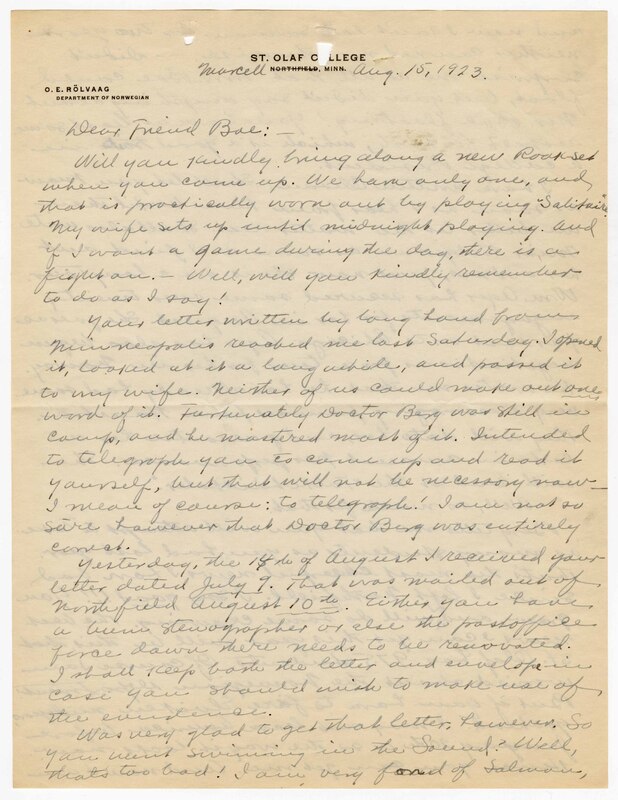 ST. OLAF COLLEGE
NORTHFIELD, MINN.
Marcell Aug. 15, 1923.
O. E. RÖLVAAG
DEPARTMENT OF NORWEGIAN
Dear Friend Boe: —
Will you kindly bring along a new Rook set
when you come up. We have only one, and
that is practically worn out by playing "Salitaire".
My wife sets up until midnight playing. And
if I want a game during the day, there is a
fight on. — Well, will you kindly remember
to do as I say!
Your letter written by long hand from
Minneapolis reached me last Saturday. I opened
it, looked at it a long while, and passed it
to my wife. Neither of us could make out one
word of it. Fortunately Doctor Berg was still in
camp, and he mastered most of it. Intended
to telegraph you to come up and read it
yourself, but that will not be necessary now —
I mean of course: to telegraph! I am not so
sure however that Doctor Berg was entirely
correct.
Yesterday, the 14th of August I received your
letter dated July 9. That was mailed out of
Northfield August 10th. Either you have
a bum stenographer or else the postoffice
force down there needs to be renovated.
I shall keep both the letter and envelope in
case you should wish to make use of
the evidence.
Was very glad to get that letter, however. So
you went swimming in the Sound? Well,
thats too bad! I am very fond of Salmon,